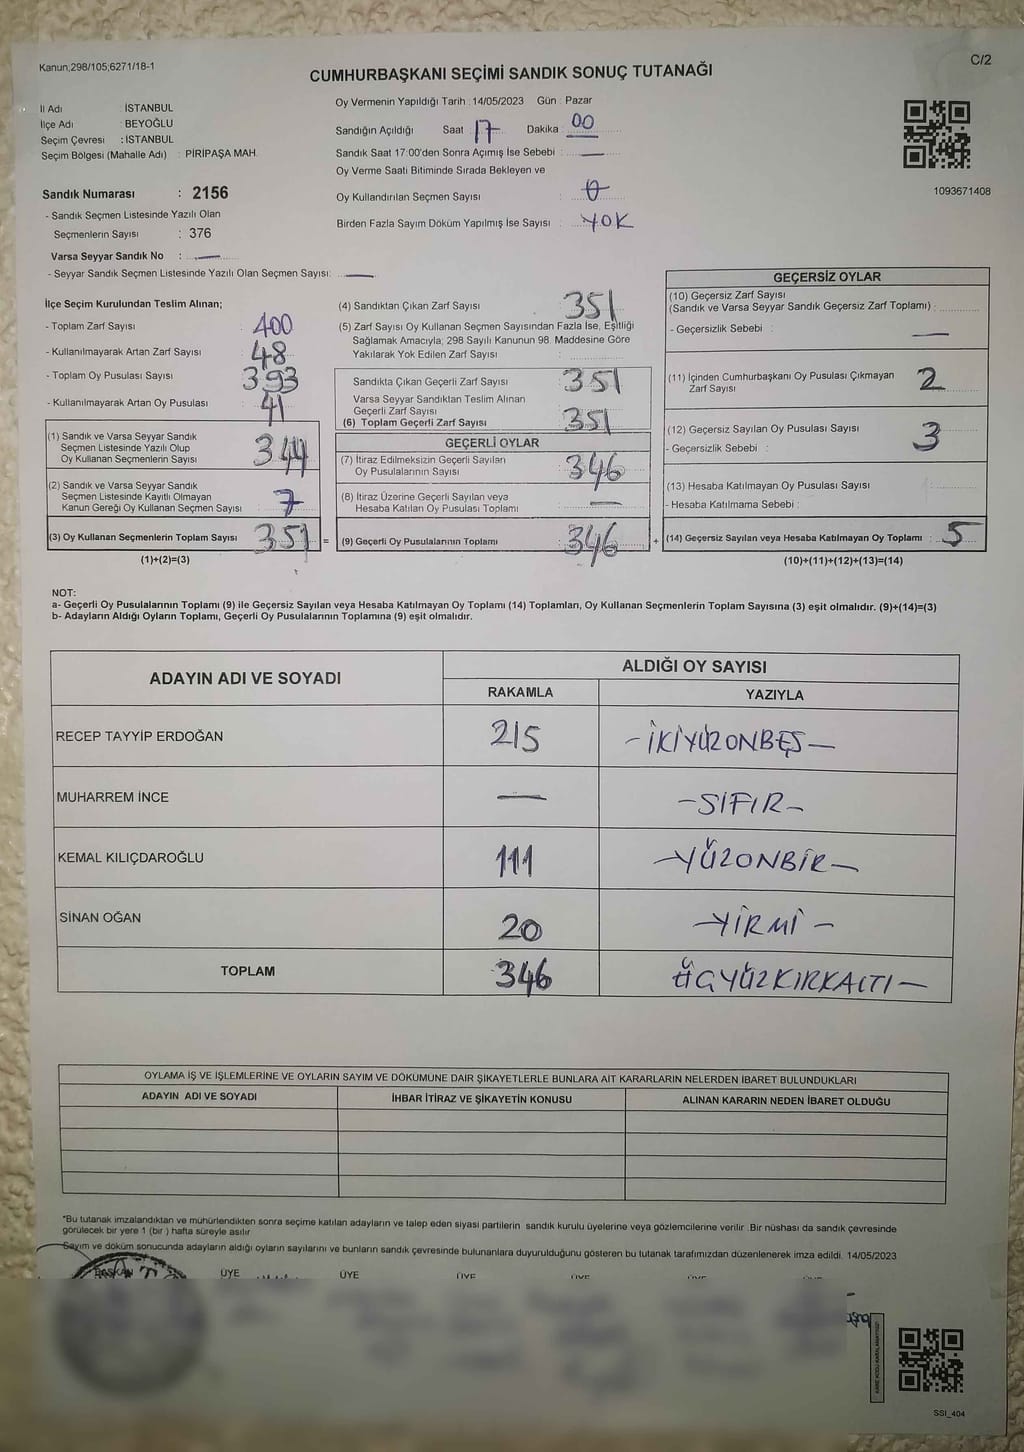 Kanun;298/105;6271/18-1
C/2
CUMHURBAŞKANI SEÇİMİ SANDIK SONUÇ TUTANAĞI
İl Adı : İSTANBUL
İlçe Adı : BEYOĞLU
Seçim Çevresi : İSTANBUL
Seçim Bölgesi (Mahalle Adı) : PİRİPAŞA MAH.
Sandık Numarası : 2156
- Sandık Seçmen Listesinde Yazılı Olan
Seçmenlerin Sayısı : 376
Varsa Seyyar Sandık No : —
- Seyyar Sandık Seçmen Listesinde Yazılı Olan Seçmen Sayısı: —
Oy Vermenin Yapıldığı Tarih : 14/05/2023 Gün : Pazar
Sandığın Açıldığı Saat 17 Dakika : 00
Sandık Saat 17:00'den Sonra Açımış İse Sebebi : —
Oy Verme Saati Bitiminde Sırada Bekleyen ve
Oy Kullandırılan Seçmen Sayısı : 0
Birden Fazla Sayım Döküm Yapılmış İse Sayısı : YOK
1093671408
İlçe Seçim Kurulundan Teslim Alınan;
- Toplam Zarf Sayısı : 400
- Kullanılmayarak Artan Zarf Sayısı : 48
- Toplam Oy Pusulası Sayısı : 393
- Kullanılmayarak Artan Oy Pusulası : 41
(1) Sandık ve Varsa Seyyar Sandık
Seçmen Listesinde Yazılı Olup
Oy Kullanan Seçmenlerin Sayısı : 344
(2) Sandık ve Varsa Seyyar Sandık
Seçmen Listesinde Kayıtlı Olmayan
Kanun Gereği Oy Kullanan Seçmen Sayısı : 7
(3) Oy Kullanan Seçmenlerin Toplam Sayısı : 351 =
(1)+(2)=(3)
(4) Sandıktan Çıkan Zarf Sayısı : 351
(5) Zarf Sayısı Oy Kullanan Seçmen Sayısından Fazla İse, Eşitliği
Sağlamak Amacıyla; 298 Sayılı Kanunun 98. Maddesine Göre
Yakılarak Yok Edilen Zarf Sayısı :
Sandıkta Çıkan Geçerli Zarf Sayısı : 351
Varsa Seyyar Sandıktan Teslim Alınan
Geçerli Zarf Sayısı
(6) Toplam Geçerli Zarf Sayısı : 351
GEÇERLİ OYLAR
(7) İtiraz Edilmeksizin Geçerli Sayılan
Oy Pusulalarının Sayısı : 346
(8) İtiraz Üzerine Geçerli Sayılan veya
Hesaba Katılan Oy Pusulası Toplamı : —
(9) Geçerli Oy Pusulalarının Toplamı : 346 +
GEÇERSİZ OYLAR
(10) Geçersiz Zarf Sayısı
(Sandık ve Varsa Seyyar Sandık Geçersiz Zarf Toplamı) :
- Geçersizlik Sebebi : —
(11) İçinden Cumhurbaşkanı Oy Pusulası Çıkmayan
Zarf Sayısı : 2
(12) Geçersiz Sayılan Oy Pusulası Sayısı : 3
- Geçersizlik Sebebi :
(13) Hesaba Katılmayan Oy Pusulası Sayısı :
- Hesaba Katılmama Sebebi :
(14) Geçersiz Sayılan veya Hesaba Katılmayan Oy Toplamı : 5
(10)+(11)+(12)+(13)=(14)
NOT:
a- Geçerli Oy Pusulalarının Toplamı (9) ile Geçersiz Sayılan veya Hesaba Katılmayan Oy Toplamı (14) Toplamları, Oy Kullanan Seçmenlerin Toplam Sayısına (3) eşit olmalıdır. (9)+(14)=(3)
b- Adayların Aldığı Oyların Toplamı, Geçerli Oy Pusulalarının Toplamına (9) eşit olmalıdır.
ADAYIN ADI VE SOYADI
ALDIĞI OY SAYISI
RAKAMLA YAZIYLA
RECEP TAYYİP ERDOĞAN 215 - İKİYÜZONBEŞ -
MUHARREM İNCE — - SIFIR -
KEMAL KILIÇDAROĞLU 111 - YÜZONBİR -
SİNAN OĞAN 20 - YİRMİ -
TOPLAM 346 ÜÇYÜZKIRKALTI -
OYLAMA İŞ VE İŞLEMLERİNE VE OYLARIN SAYIM VE DÖKÜMÜNE DAİR ŞİKAYETLERLE BUNLARA AİT KARARLARIN NELERDEN İBARET BULUNDUKLARI
ADAYIN ADI VE SOYADI İHBAR İTİRAZ VE ŞİKAYETİN KONUSU ALINAN KARARIN NEDEN İBARET OLDUĞU
*Bu tutanak imzalandıktan ve mühürlendikten sonra seçime katılan adayların ve talep eden siyasi partilerin sandık kurulu üyelerine veya gözlemcilerine verilir .Bir nüshası da sandık çevresinde
görülecek bir yere 1 (bir ) hafta süreyle asılır
Sayım ve döküm sonucunda adayların aldığı oyların sayılarını ve bunların sandık çevresinde bulunanlara duyurulduğunu gösteren bu tutanak tarafımızdan düzenlenerek imza edildi. 14/05/2023
BAŞKAN ÜYE ÜYE ÜYE ÜYE ÜYE
SSI_404